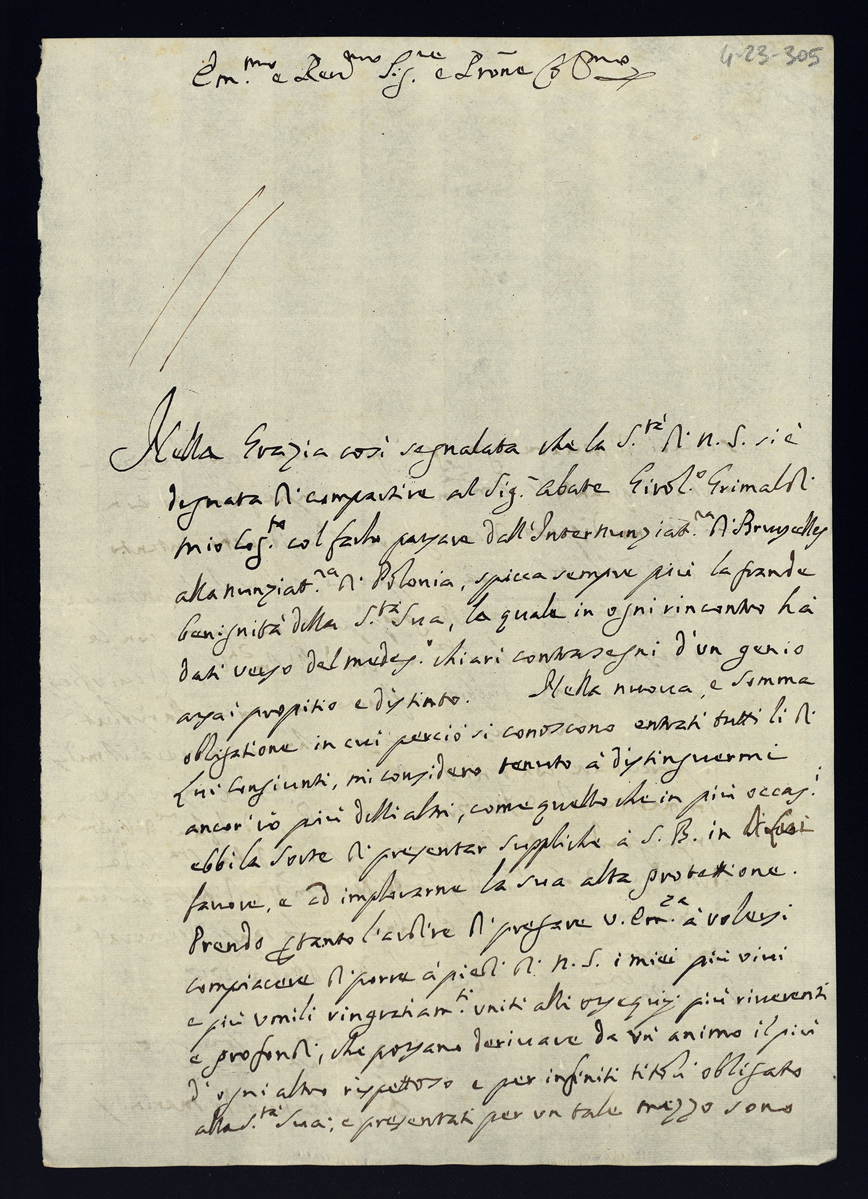 4-23-305
Em.mo e Rev.mo Sig.re e Prõne
Nella Grazia così segnalata che la S.tà di N. S. si è
degnata di compartire al Sig.r Abate Girol.o Grimaldi
mio Cog.to col farlo passare dall'Internunziat.ra di Brusselles
alla nunziat.ra di Polonia, spicca sempre più la grande
benignità della S.tà Sua, la quale in ogni rincontro hà
dati verso del medes.o chiari contrasegni d'un genio
assai propitio e distinto. Nella nuova, e somma
obligatione in cui perciò si conoscono entrati tutti li di
Lui congiunti, mi considero tenuto à distinguermi
ancor' io più delli altri, come quello che in più occas.i
ebbi la sorte di presentar suppliche à S. B. in di lui
favore, e ad implorarne la sua alta protettione.
Prendo ptanto l'ardire di pregare V. Em.za à volersi
compiacere di porre à piedi di N. S. i miei più vivi
e più umili ringratiam.ti uniti alli ossequij più riverenti
e profondi, che possano derivare da un' animo il più
d'ogni altro rispettoso e per infiniti titoli obligato
alla S.tà Sua; e presentati per un tale mezzo sono